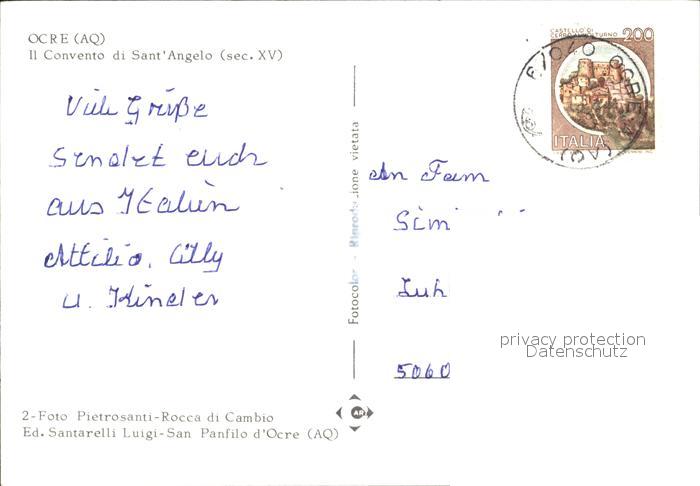 OCRE (AQ)
Il Convento di Sant'Angelo (sec. XV)
Viele Grüße
Sendet euch
aus Italien
Attilio, Cilly
u. Kinder
2-Foto Pietrosanti-Rocca di Cambio
Ed. Santarelli Luigi-San Panfilo d'Ocre (AQ)
Fotocolor - Riproduzione vietata
AR
CASTELLO DI
CERRO AL VOLTURNO
200
ITALIA
67040 OCRE
(AQ)
An Fam
Sim
5060
privacy protection
Datenschutz